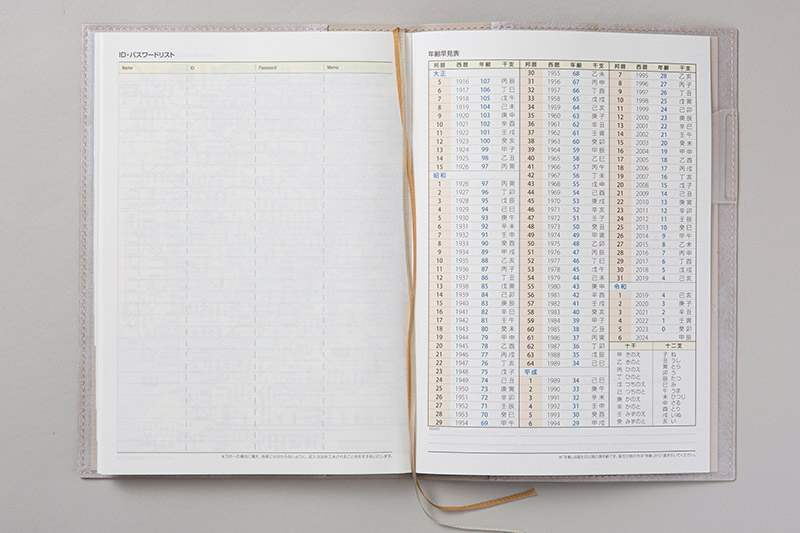 ID・パスワードリスト
Name ID Password Memo
年齢早見表
邦暦 西暦 年齢 干支
大正
5 1916 107 丙辰
6 1917 106 丁巳
7 1918 105 戊午
8 1919 104 己未
9 1920 103 庚申
10 1921 102 辛酉
11 1922 101 壬戌
12 1923 100 癸亥
13 1924 99 甲子
14 1925 98 乙丑
15 1926 97 丙寅
昭和
1 1926 97 丙寅
2 1927 96 丁卯
3 1928 95 戊辰
4 1929 94 己巳
5 1930 93 庚午
6 1931 92 辛未
7 1932 91 壬申
8 1933 90 癸酉
9 1934 89 甲戌
10 1935 88 乙亥
11 1936 87 丙子
12 1937 86 丁丑
13 1938 85 戊寅
14 1939 84 己卯
15 1940 83 庚辰
16 1941 82 辛巳
17 1942 81 壬午
18 1943 80 癸未
19 1944 79 甲申
20 1945 78 乙酉
21 1946 77 丙戌
22 1947 76 丁亥
23 1948 75 戊子
24 1949 74 己丑
25 1950 73 庚寅
26 1951 72 辛卯
27 1952 71 壬辰
28 1953 70 癸巳
29 1954 69 甲午
邦暦 西暦 年齢 干支
30 1955 68 乙未
31 1956 67 丙申
32 1957 66 丁酉
33 1958 65 戊戌
34 1959 64 己亥
35 1960 63 庚子
36 1961 62 辛丑
37 1962 61 壬寅
38 1963 60 癸卯
39 1964 59 甲辰
40 1965 58 乙巳
41 1966 57 丙午
42 1967 56 丁未
43 1968 55 戊申
44 1969 54 己酉
45 1970 53 庚戌
46 1971 52 辛亥
47 1972 51 壬子
48 1973 50 癸丑
49 1974 49 甲寅
50 1975 48 乙卯
51 1976 47 丙辰
52 1977 46 丁巳
53 1978 45 戊午
54 1979 44 己未
55 1980 43 庚申
56 1981 42 辛酉
57 1982 41 壬戌
58 1983 40 癸亥
59 1984 39 甲子
60 1985 38 乙丑
61 1986 37 丙寅
62 1987 36 丁卯
63 1988 35 戊辰
64 1989 34 己巳
平成
1 1989 34 己巳
2 1990 33 庚午
3 1991 32 辛未
4 1992 31 壬申
5 1993 30 癸酉
6 1994 29 甲戌
邦暦 西暦 年齢 干支
7 1995 28 乙亥
8 1996 27 丙子
9 1997 26 丁丑
10 1998 25 戊寅
11 1999 24 己卯
12 2000 23 庚辰
13 2001 22 辛巳
14 2002 21 壬午
15 2003 20 癸未
16 2004 19 甲申
17 2005 18 乙酉
18 2006 17 丙戌
19 2007 16 丁亥
20 2008 15 戊子
21 2009 14 己丑
22 2010 13 庚寅
23 2011 12 辛卯
24 2012 11 壬辰
25 2013 10 癸巳
26 2014 9 甲午
27 2015 8 乙未
28 2016 7 丙申
29 2017 6 丁酉
30 2018 5 戊戌
31 2019 4 己亥
令和
1 2019 4 己亥
2 2020 3 庚子
3 2021 2 辛丑
4 2022 1 壬寅
5 2023 0 癸卯
6 2024 甲辰
十干
甲 きのえ
乙 きのと
丙 ひのえ
丁 ひのと
戊 つちのえ
己 つちのと
庚 かのえ
辛 かのと
壬 みずのえ
癸 みずのと
十二支
子 ね
丑 うし
寅 とら
卯 う
辰 たつ
巳 み
午 うま
未 ひつじ
申 さる
酉 とり
戌 いぬ
亥 い
MEMO